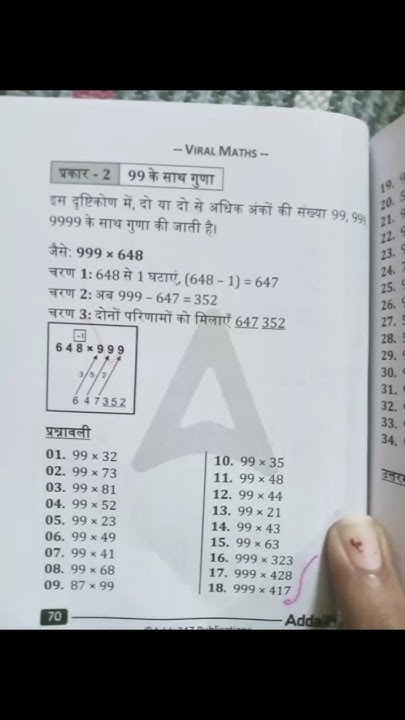 -- VIRAL MATHS --
प्रकार - 2 99 के साथ गुणा
इस दृष्टिकोण में, दो या दो से अधिक अंकों की संख्या 99, 999
9999 के साथ गुणा की जाती है।
जैसे: 999 × 648
चरण 1: 648 से 1 घटाएं, (648 – 1) = 647
चरण 2: अब 999 – 647 = 352
चरण 3: दोनों परिणामों को मिलाएँ 647 352
-1
648×999
3 5 2
647352
प्रश्नावली
01. 99 × 32
02. 99 × 73
03. 99 × 81
04. 99 × 52
05. 99 × 23
06. 99 × 49
07. 99 × 41
08. 99 × 68
09. 87 × 99
10. 99 × 35
11. 99 × 48
12. 99 × 44
13. 99 × 21
14. 99 × 43
15. 99 × 63
16. 999 × 323
17. 999 × 428
18. 999 × 417
70
19.
20.
21.
22.
23.
24.
25.
26.
27.
28.
29.
30.
31.
32.
33.
34.